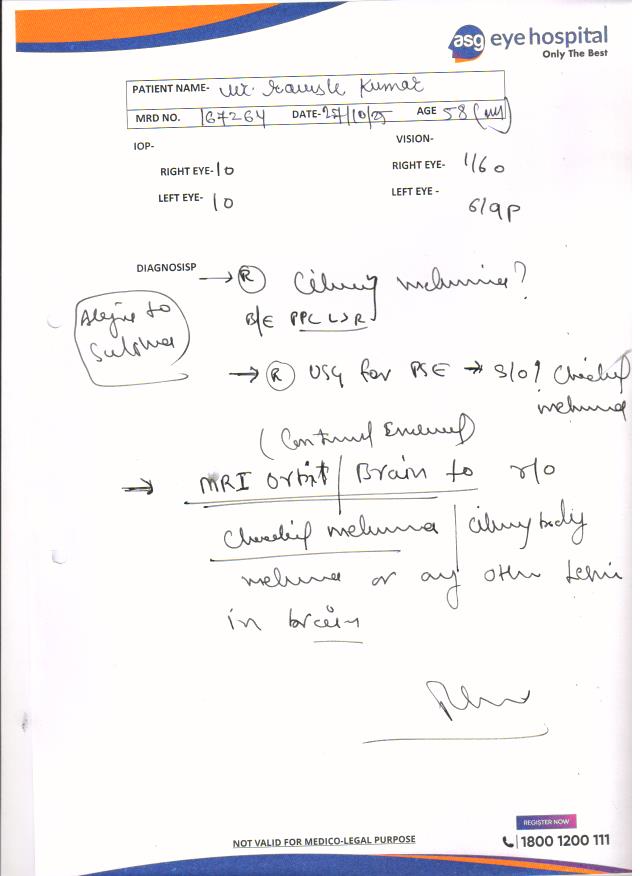 asg eye hospital
Only The Best
PATIENT NAME- Mr. Kumar
MRD NO. 167264 DATE- 27/10/25 AGE 58 (M)
IOP- VISION-
RIGHT EYE- 10 RIGHT EYE- 1/60
LEFT EYE- 10 LEFT EYE - 6/9P
DIAGNOSISP → (R) Ciliary melanoma?
B/E PPC L>R
Allergic to
Sulphur
→ (R) USG for PSE → S/O? Choroidal
melanoma
→ MRI Orbit / Brain to r/o
Choroidal melanoma / Ciliary body
melanoma or any other lesion
in brain
REGISTER NOW
NOT VALID FOR MEDICO-LEGAL PURPOSE
1800 1200 111